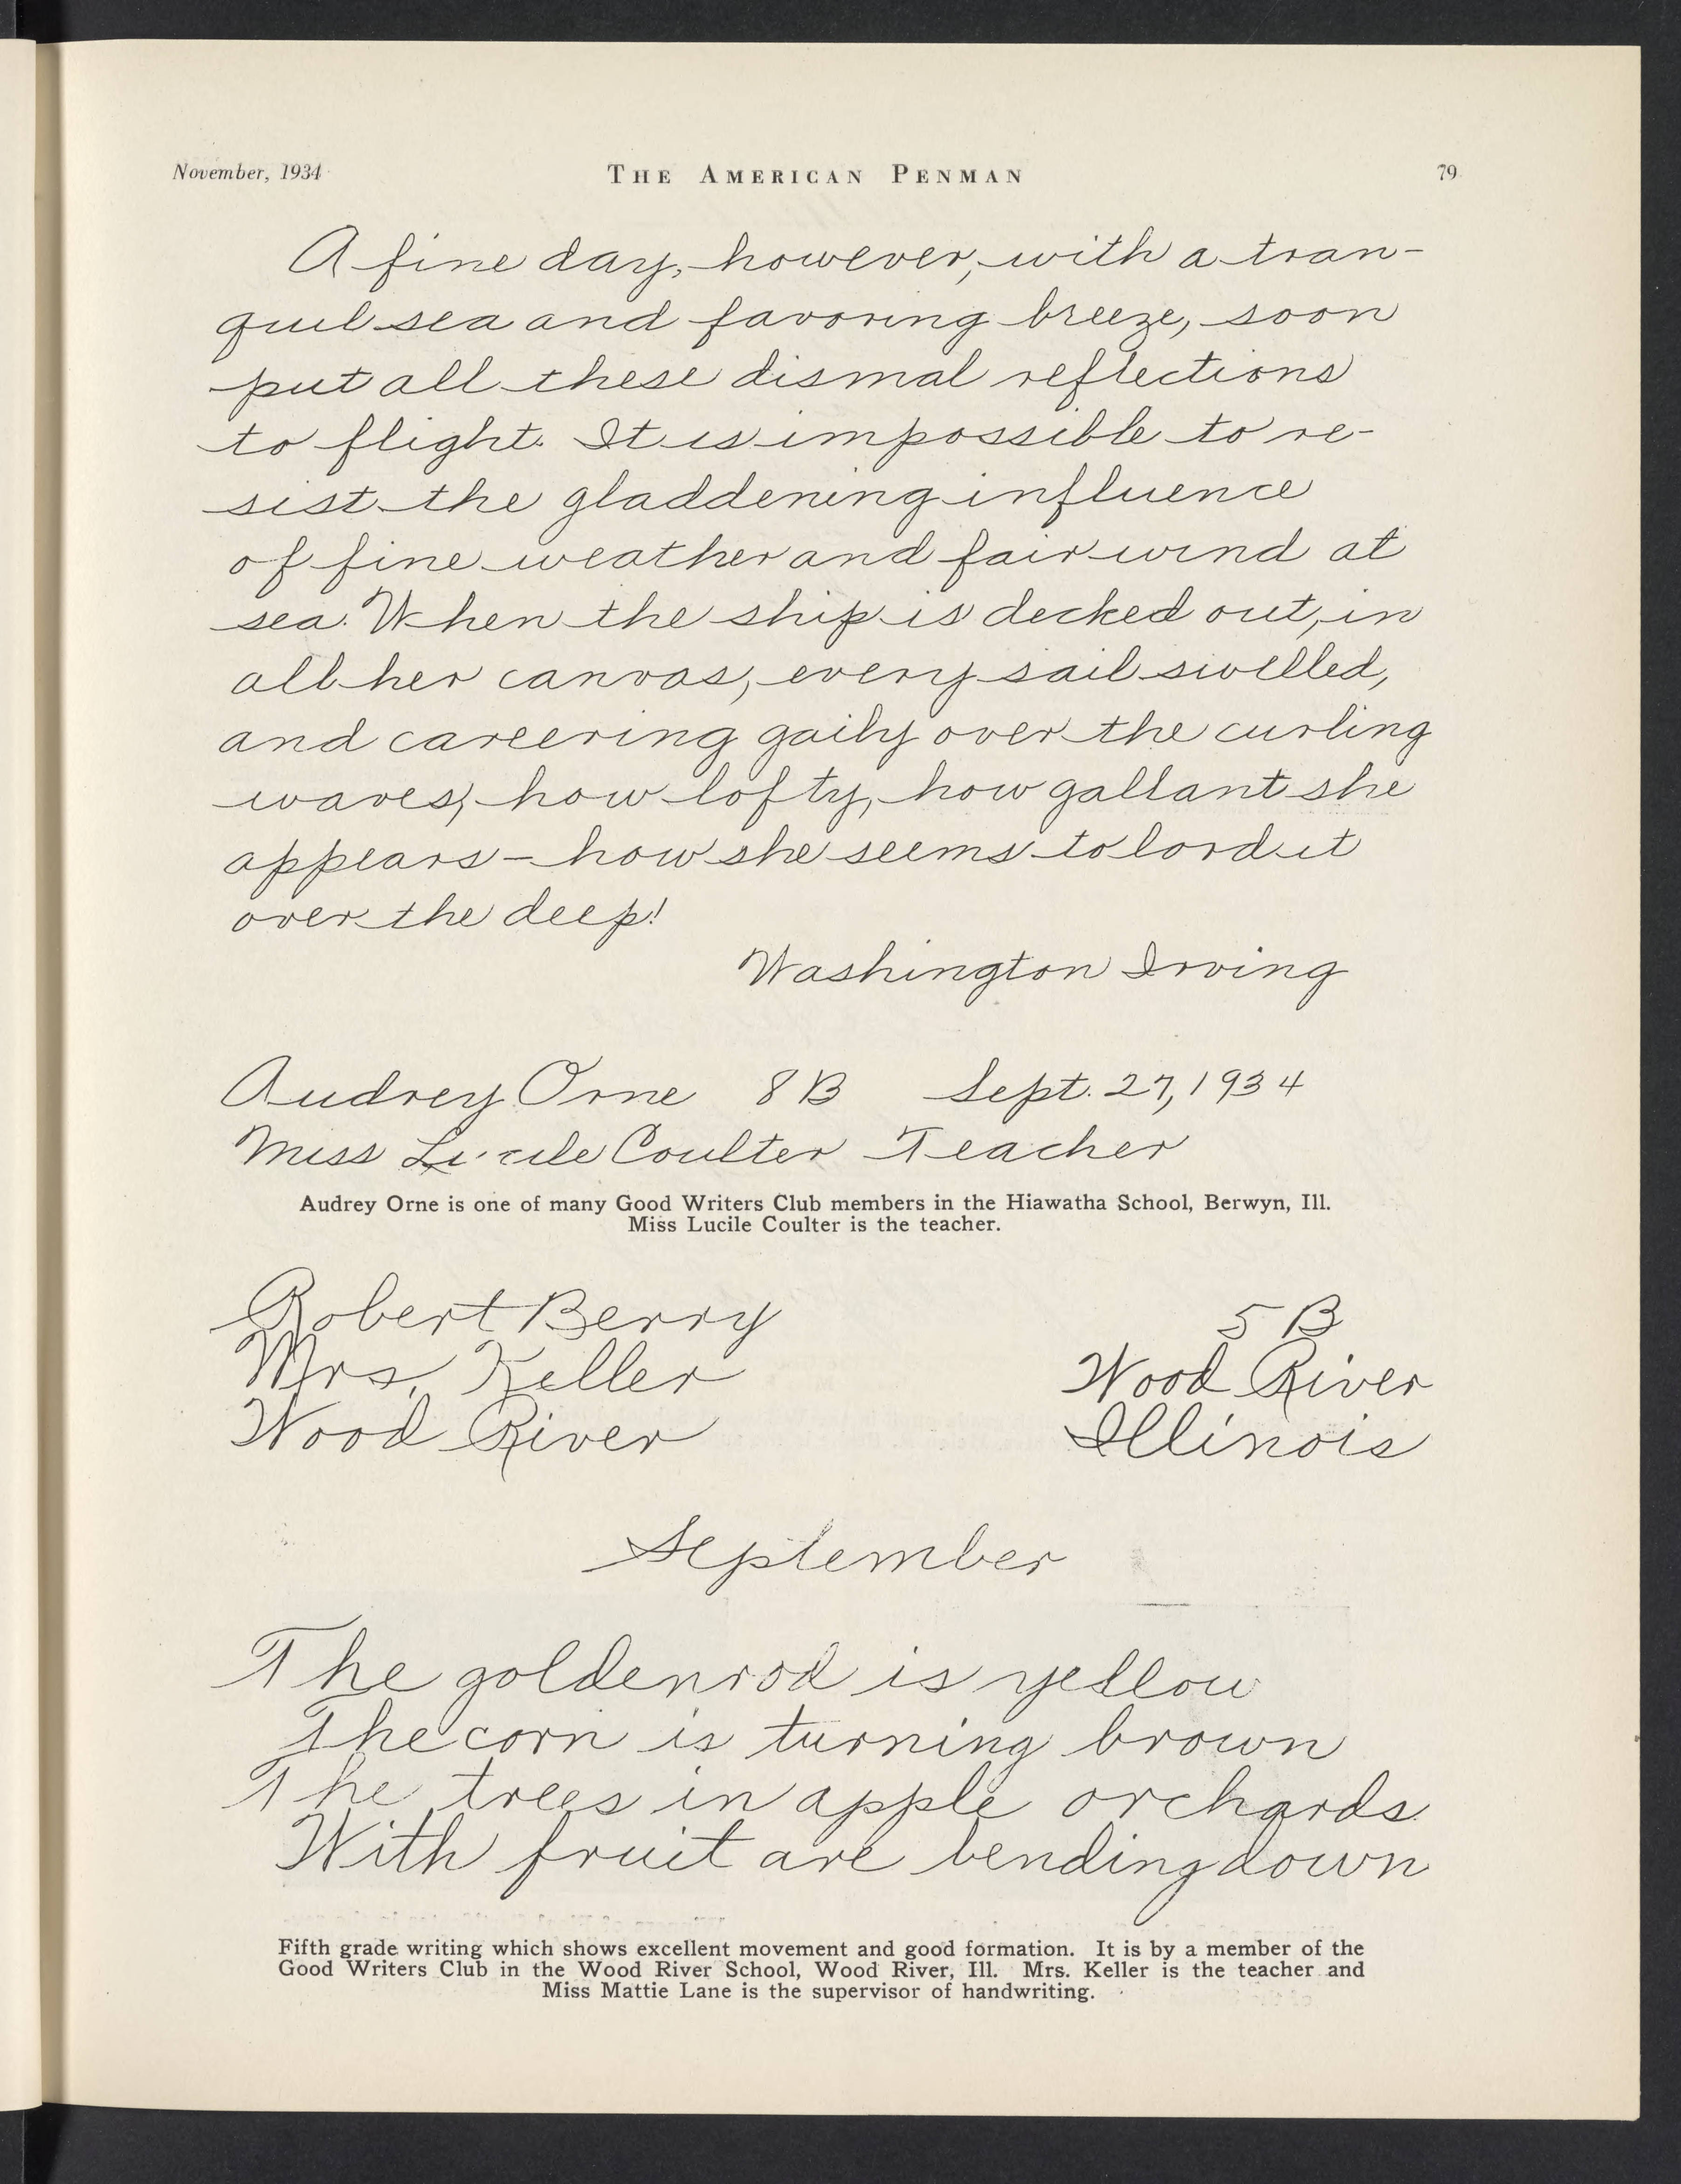 November, 1934 THE AMERICAN PENMAN 79
A fine day, however, with a tran-
quil sea and favoring breeze, soon
put all these dismal reflections
to flight. It is impossible to re-
sist the gladdening influence
of fine weather and fair wind at
sea. When the ship is decked out, in
all her canvas, every sail swelled,
and careering gaily over the curling
waves, how lofty, how gallant she
appears – how she seems to lord it
over the deep!
Washington Irving
Audrey Orne 8B Sept. 27, 1934
Miss Lucile Coulter Teacher
Audrey Orne is one of many Good Writers Club members in the Hiawatha School, Berwyn, Ill.
Miss Lucile Coulter is the teacher.
Robert Berry 5 B
Mrs. Keller Wood River
Wood River Illinois
September
The goldenrod is yellow
The corn is turning brown
The trees in apple orchards
With fruit are bending down
Fifth grade writing which shows excellent movement and good formation. It is by a member of the
Good Writers Club in the Wood River School, Wood River, Ill. Mrs. Keller is the teacher and
Miss Mattie Lane is the supervisor of handwriting.